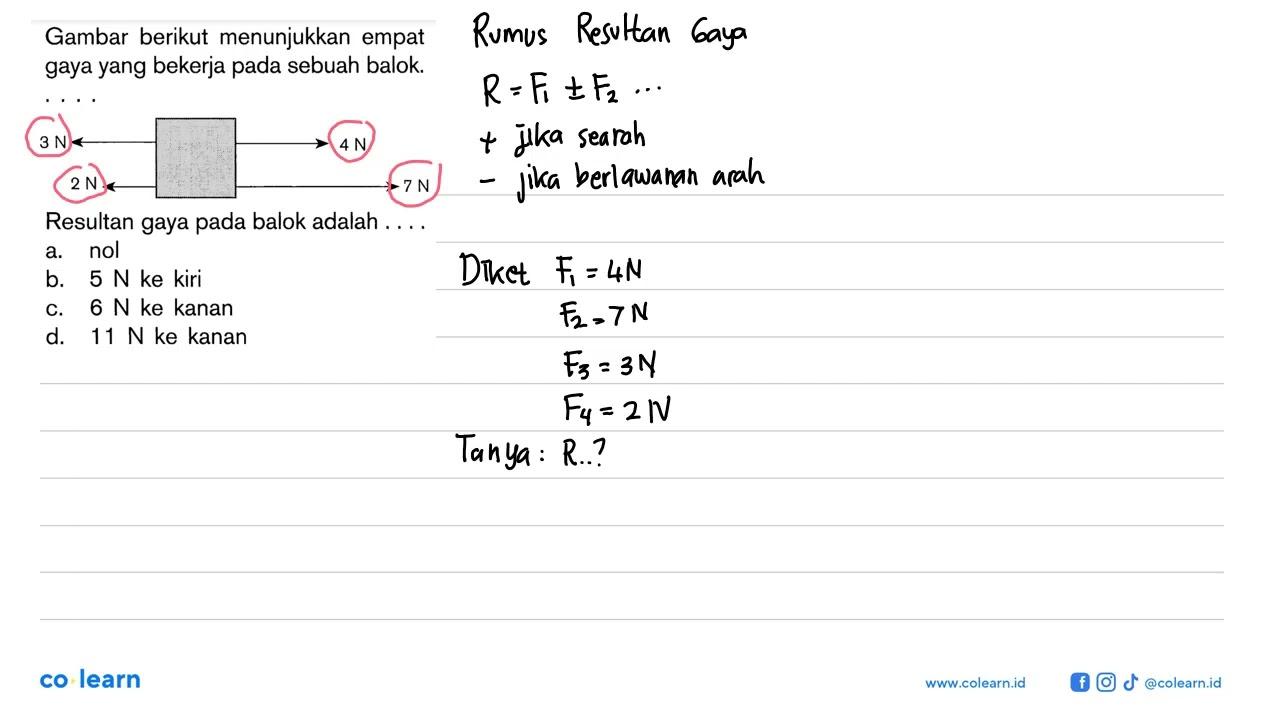 Gambar berikut menunjukkan empat
gaya yang bekerja pada sebuah balok.
. . . .
3 N
4 N
2 N
7 N
Resultan gaya pada balok adalah . . . .
a. nol
b. 5 N ke kiri
c. 6 N ke kanan
d. 11 N ke kanan
Rumus Resultan Gaya
R = F₁ ± F₂ ...
+ jika searah
- jika berlawanan arah
Diket F₁ = 4N
F₂ = 7 N
F₃ = 3N
F₄ = 2 N
Tanya : R..?
co learn
www.colearn.id
@colearn.id